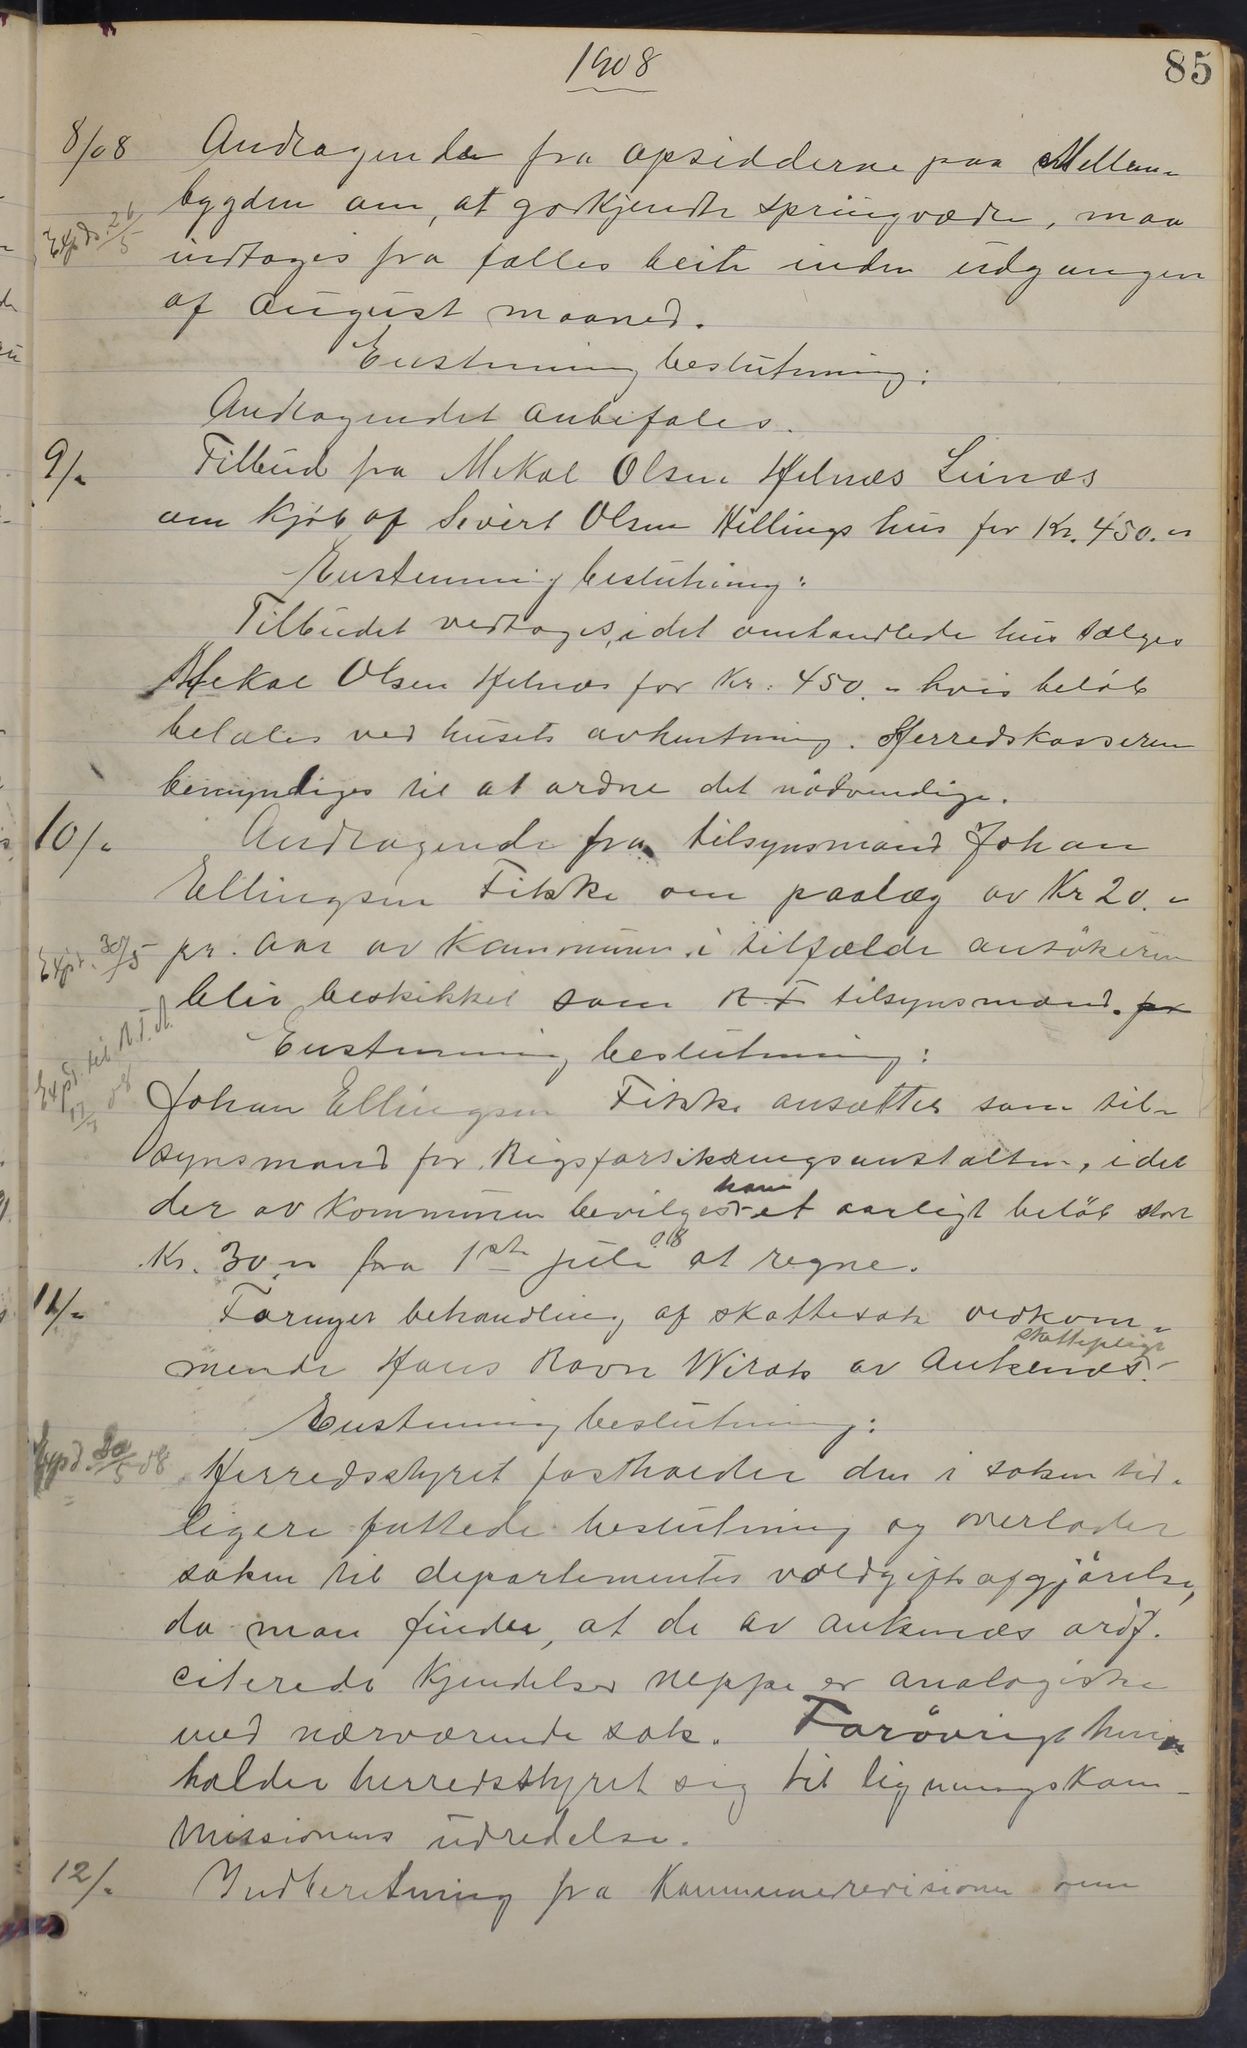 1908
85
8/08 Andragende fra opsidderne paa Mellem-
bygden om, at godkjendte springvædre, maa
Expd. 26/5
indtages fra fælles beite inden udgangen
af August maaned.
Enstemmig beslutning:
Andragendet anbefales.
9/" Tilbud fra Mekal Olsen Helnæs Leinæs
om kjöb af Sivert Olsen Hellings hus for Kr. 450."
Enstemmig beslutning:
Tilbudet vedtages, idet omhandlede hus sælges
Mekal Olsen Helnæs for Kr. 450." hvis belöb
betales ved husets avhentning. Herredskasseren
bemyndiges til at ordne det nödvendige.
10/" Andragende fra tilsynsmand Johan
Ellingsen Fikke om paalæg av Kr 20."
Expd. 30/5 pr. Aar av Kommunen i tilfælde ansökeren
blir beskikket som R.F tilsynsmand. for
Expd. til R.F.A.
Enstemmig beslutning:
Johan Ellingsen Fikke ansættes som til-
synsmand for Rigsforsikringsanstalten, idet
ham
der av Kommunen bevilges et aarligt belöb stort
Kr. 30." fra 1ste juli 08 at regne.
11/" Fornyet behandling af skattesak vedkom-
skattepligt
mende Hans Ravn Wirak av Ankenes.
Enstemmig beslutning:
Expd. 30/5 08 Herredsstyret fastholder den i saken tid-
ligere fattede beslutning og overlader
saken til departementes voldgiftsafgjörelse,
da man finder, at de av Ankenæs ordf.
citerede Kjendelser neppe er analogiske
med nærværende sak. Forövrigt hen-
holder herredsstyret sig til ligningskom-
missionens udredelse.
12/" Indberetning fra Kommunerevisionen om